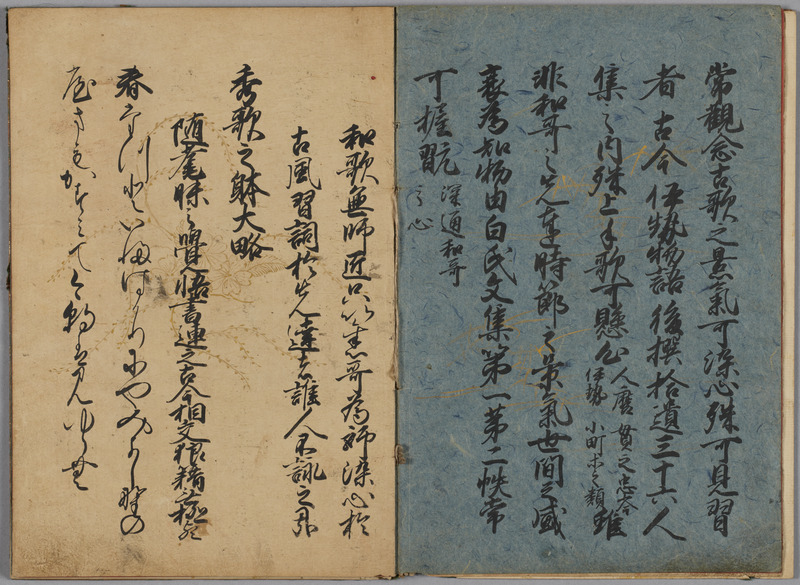 常觀念古歌之景氣可染心殊可見習
者古今伊勢物語後撰拾遺三十六人
集之内殊上手歌可懸心人麿貫之忠岑伊勢小町等之類雖
非和哥之先達時節之景氣世間之盛
衰為知物由白氏文集第一第二帙常
可握翫深通和哥之心
和歌無師匠只以旧哥為師染心於
古風習詞於先達者誰人不詠之哉
秀歌之躰大略
随耄昧之覺悟書連之古今相交狼藉無極
春たつといふはかりにやみよし野の
山もかすみてけさは見ゆらむ